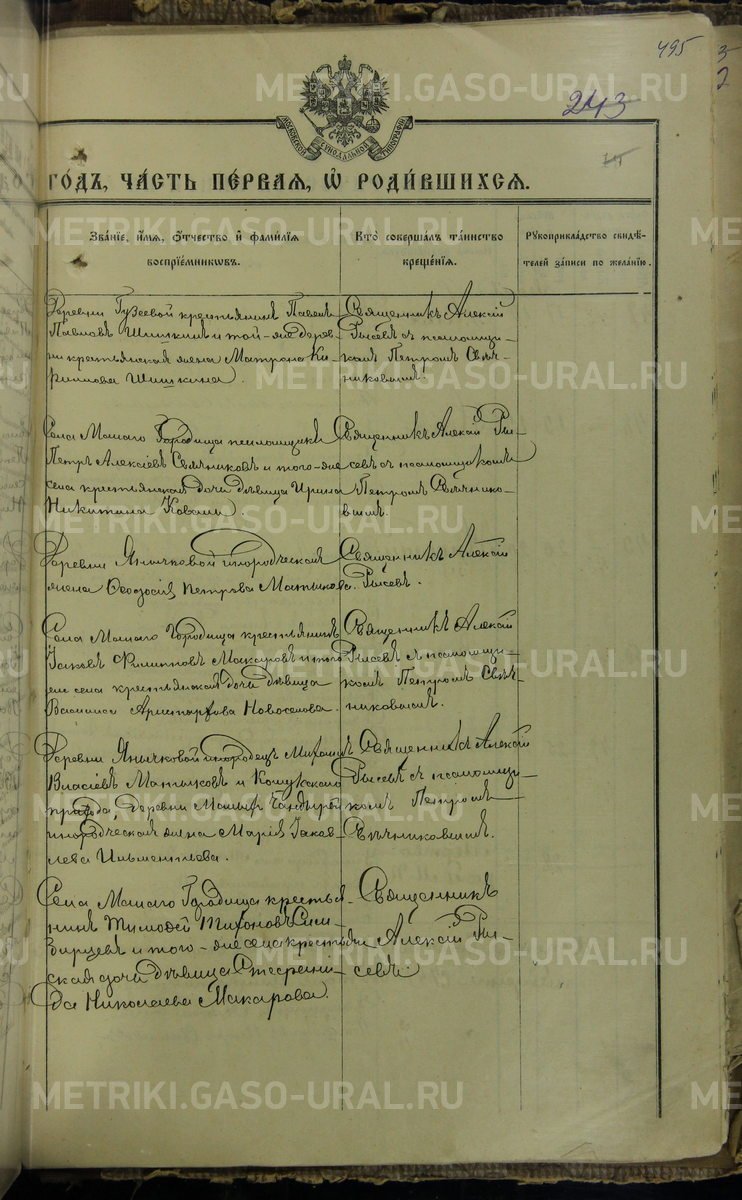 495
243
METRIKI.GASO-URAL.RU
МОСКОВСКОЙ СѴНОДАЛЬНОЙ ТИПОГРАФІИ
ГО́ДЪ, ЧА́СТЬ ПЕ́РВАЯ, Ѡ҆ РОДИ́ВШИХСЯ.
Зва́нїе, и҆́мя, ѻ҆́тчество и҆ фами́лїя
воспрїе́мникѡвъ.
Кто̀ соверша́лъ та́инство
креще́нїя.
Рукоприкла́дство свидѣ́-
телей за́писи по жела́нїю.
Деревни Гузеевой крестьянинъ Павелъ
Павловъ Шишкинъ и той-же дерев-
ни крестьянская жена Матрона Ки-
риллова Шишкина.
Священникъ Алексій
Рысевъ съ псаломщи-
комъ Петромъ Свѣч-
никовымъ.
Села Малаго Городища псаломщикъ
Петръ Алексіевъ Свѣчниковъ и того-же
села крестьянская дочь дѣвица Ирина
Никитина
Священникъ Алексій Ры-
севъ съ псаломщикомъ
Петромъ Свѣчнико-
вымъ.
Деревни Янычковой инородческая
жена Ѳеодосія Петрова Матыкова.
Священникъ Алексій
Рысевъ.
Села Малаго Городища крестьянинъ
Іаковъ Филипповъ Макаровъ и того
же села крестьянская дочь дѣвица
Василиса Аристархова Новоселова.
Священникъ Алексій
Рысевъ съ псаломщи-
комъ Петромъ Свѣч-
никовымъ.
Деревни Янычковой инородецъ Михаилъ
Власіевъ Матыковъ и Кошукскаго
прихода, деревни
инородческая жена Марія Іаков-
лева
Священникъ Алексій
Рысевъ съ псаломщи-
комъ Петромъ
Свѣчниковымъ.
Села Малаго Городища крестья-
нинъ Тимоѳей Тихоновъ Сим-
бирцевъ и того-же села крестьян-
ская дочь дѣвица
да Николаева Макарова.
Священникъ
Алексій Ры-
севъ.